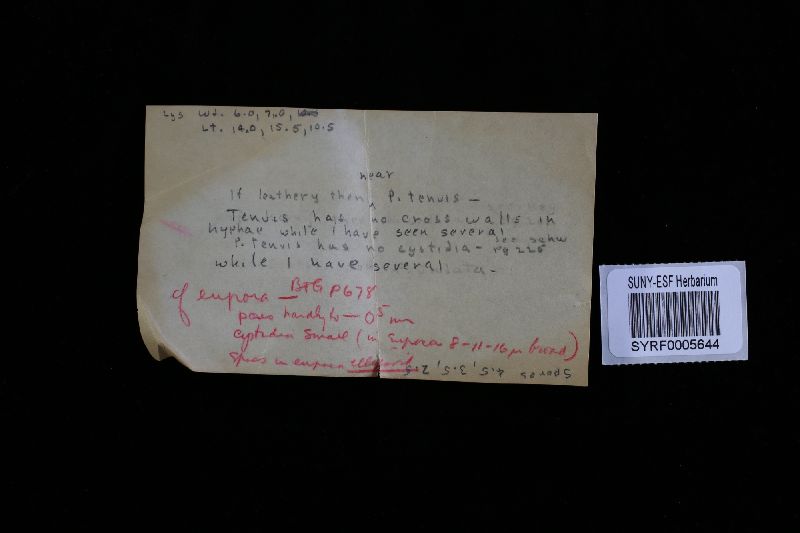 Lys Wt. 6.0, 7.0,
Lt. 14.0, 15.5, 10.5
near
If leathery then P. tenuis -
Tenuis has no cross walls in
hyphae while I have seen several
P. tenuis has no cystidia - see Schw
Pg 225
while I have several -
cf eupora - B+G P678
pores hardly to - 0.5 mm
cystidia small (in eupora 8-11-16 µ broad)
Spores in eupora ellipsoid
Spores 4.5, 3.5, 2.5
SUNY-ESF Herbarium
SYRF0005644